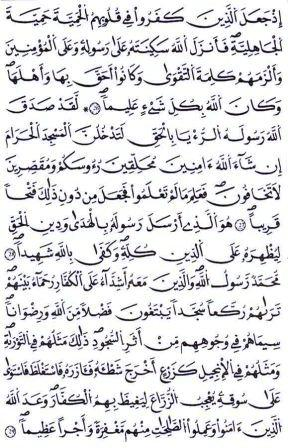 إِذْ جَعَلَ الَّذِينَ كَفَرُوا فِي قُلُوبِهِمُ الْحَمِيَّةَ حَمِيَّةَ
الْجَاهِلِيَّةِ فَأَنزَلَ اللَّهُ سَكِينَتَهُ عَلَىٰ رَسُولِهِ وَعَلَى الْمُؤْمِنِينَ
وَأَلْزَمَهُمْ كَلِمَةَ التَّقْوَىٰ وَكَانُوا أَحَقَّ بِهَا وَأَهْلَهَا
وَكَانَ اللَّهُ بِكُلِّ شَيْءٍ عَلِيمًا ٢٦ لَّقَدْ صَدَقَ
اللَّهُ رَسُولَهُ الرُّءْيَا بِالْحَقِّ لَتَدْخُلُنَّ الْمَسْجِدَ الْحَرَامَ
إِن شَاءَ اللَّهُ ءَامِنِينَ مُحَلِّقِينَ رُءُوسَكُمْ وَمُقَصِّرِينَ
لَا تَخَافُونَ فَعَلِمَ مَا لَمْ تَعْلَمُوا فَجَعَلَ مِن دُونِ ذَٰلِكَ فَتْحًا
قَرِيبًا ٢٧ هُوَ الَّذِي أَرْسَلَ رَسُولَهُ بِالْهُدَىٰ وَدِينِ الْحَقِّ
لِيُظْهِرَهُ عَلَى الدِّينِ كُلِّهِ وَكَفَىٰ بِاللَّهِ شَهِيدًا ٢٨
مُّحَمَّدٌ رَّسُولُ اللَّهِ وَالَّذِينَ مَعَهُ أَشِدَّاءُ عَلَى الْكُفَّارِ رُحَمَاءُ بَيْنَهُمْ
تَرَاهُمْ رُكَّعًا سُجَّدًا يَبْتَغُونَ فَضْلًا مِّنَ اللَّهِ وَرِضْوَانًا
سِيمَاهُمْ فِي وُجُوهِهِم مِّنْ أَثَرِ السُّجُودِ ذَٰلِكَ مَثَلُهُمْ فِي التَّوْرَاةِ
وَمَثَلُهُمْ فِي الْإِنجِيلِ كَزَرْعٍ أَخْرَجَ شَطْأَهُ فَآزَرَهُ فَاسْتَغْلَظَ فَاسْتَوَىٰ
عَلَىٰ سُوقِهِ يُعْجِبُ الزُّرَّاعَ لِيَغِيظَ بِهِمُ الْكُفَّارَ وَعَدَ اللَّهُ
الَّذِينَ ءَامَنُوا وَعَمِلُوا الصَّالِحَاتِ مِنْهُم مَّغْفِرَةً وَأَجْرًا عَظِيمًا ٢٩